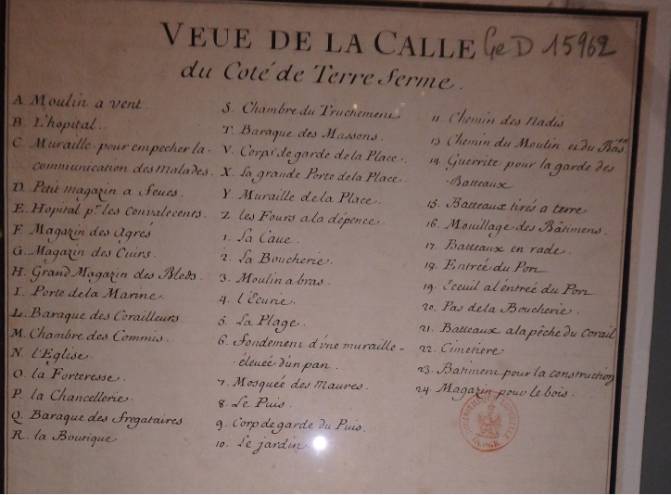 VEUE DE LA CALLE
Ge D 15962
du Coté de Terre ferme.
A. Moulin a vent.
B. L'hopital.
C. Muraille pour empecher la
communication des malades.
D. Petit magazin a feues.
E. Hopital pr. les convalecents.
F. Magazin des Agrés
G. Magazin des Cuirs.
H. Grand Magazin des Bleds.
I. Porte de la Marine.
L. Baraque des Corailleurs
M. Chambre des Commis.
N. l'Eglise.
O. la Forteresse.
P. la Chancellerie.
Q. Baraque des fregataires
R. la Boutique
S. Chambre du Truchement
T. Baraque des Massons.
V. Corps de garde de la Place.
X. La grande Porte de la Place.
Y. Muraille de la Place.
Z. les Fours a la dépence.
1. La Caue.
2. La Boucherie.
3. Moulin a bras.
4. l'Ecurie.
5. La Plage.
6. Fondement d'vne muraille
éleuée d'un pan.
7. Mosquée des Maures.
8. Le Puis.
9. Corp de garde du Puis.
10. Le jardin
11. Chemin des Nadis
13. Chemin du Moulin et du Bastion
14. Guerrite pour la garde des
Batteaux
15. Batteaux tirés a terre
16. Mouillage des Bâtimens.
17. Batteaux en rade.
18. Entrée du Port
19. Eceuil al entrée du Port
20. Pas de la Boucherie.
21. Batteaux a la pêche du Corail
22. Cimetiere
23. Batiment pour la construction
24. Magazin pour le bois.